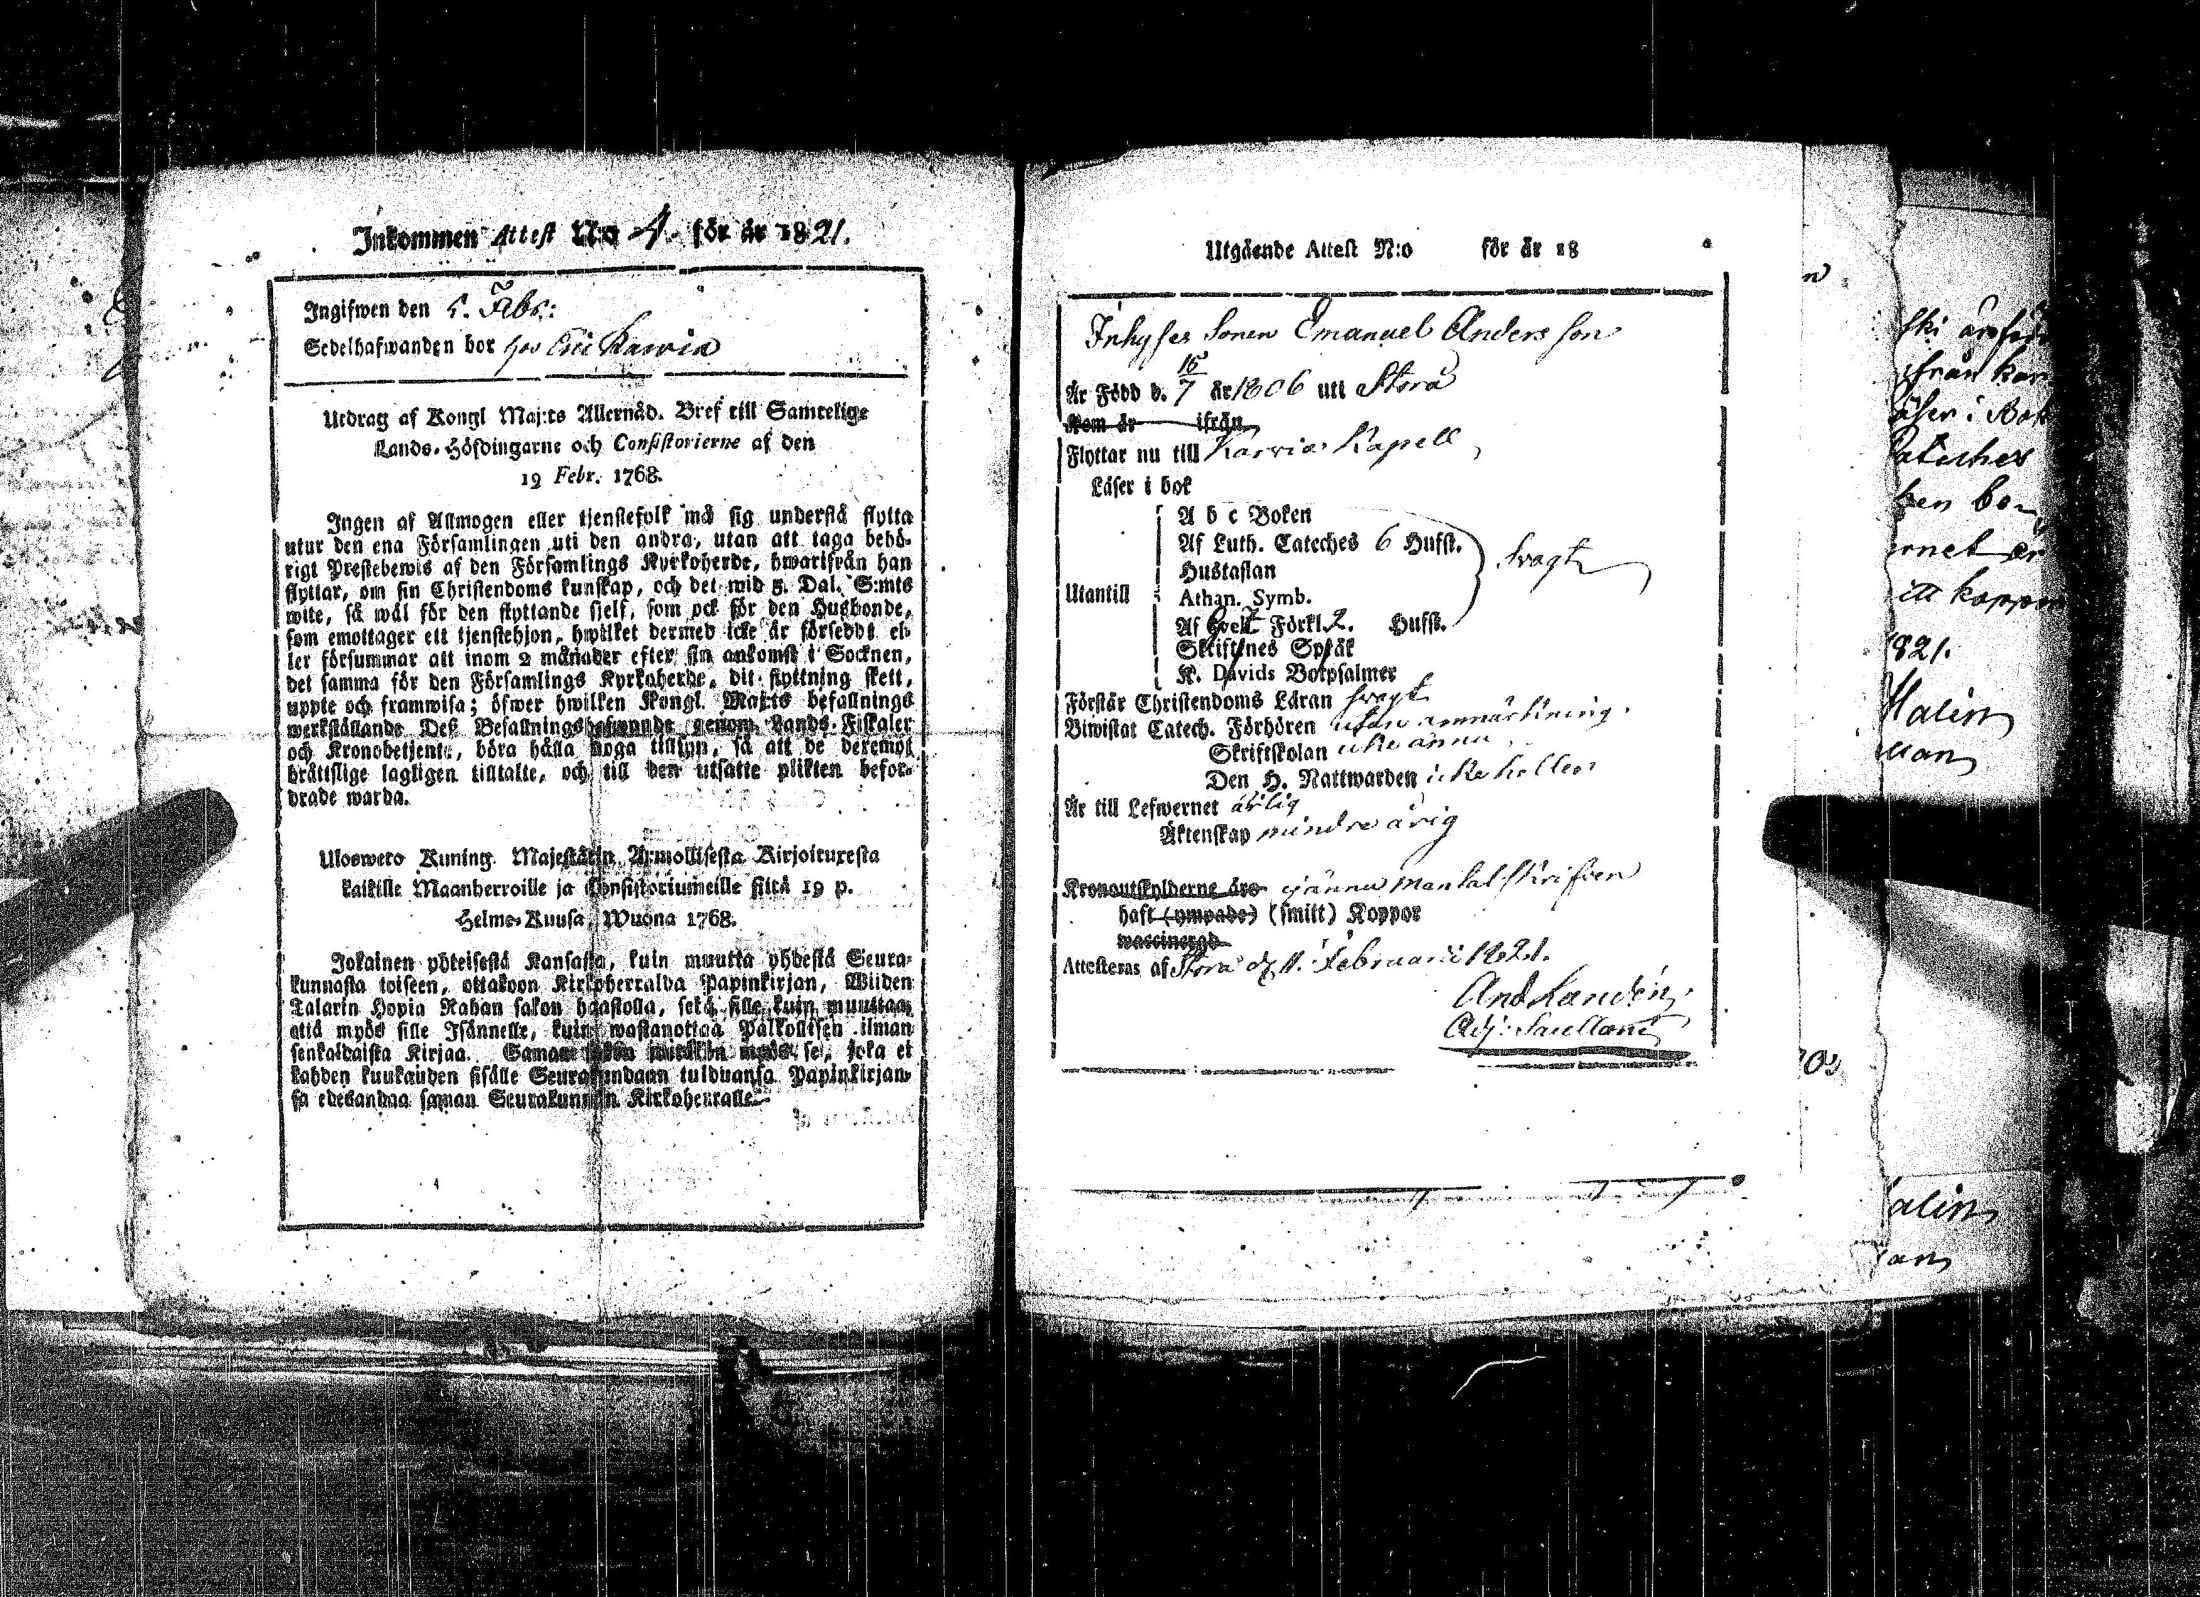 Inkommen Attest N:o 4. för år 1821.
Ingifwen den 5. Febr:
Sedelhafwanden bor hos Eric Karvia
Utdrag af Kongl Maj:ts Allernåd. Bref till Samtelige
Lands-Höfdingarne och Consistorierne af den
19 Febr. 1768.
Ingen af Allmogen eller tjenstefolk må sig understå flytta
utur den ena Församlingen uti den andra, utan att taga behö-
rigt Prestebewis af den Församlings Kyrkoherde, hwarifrån han
flyttar, om sin Christendoms kunskap, och det wid 5. Dal. S:mts
wite, så wäl för den flyttande sielf, som ock för den Husbonde,
som emottager ett tjenstehjon, hwilket dermed icke är försedde el-
ler försummar att inom 2 månader efter sin ankomst i Socknen,
det samma för den Församlings Kyrkoherde, dit flyttning skett,
uppte och framwisa; öfwer hwilken Kongl. Maj:ts befallnings
werkställande Deß Befallningshafwande genom Lands-Fiskaler
och Kronobetjente, böra hålla noga tillsyn, så att de deremot
bråttslige lagligen tilltalte, och till den utsatte plikten befor-
drade warda.
Ulosweto Kuning. Majestätin Armollisesta Kirjoituxesta
kaikille Maanherroille ja Consistoriumeille siltä 19 p.
Helme-Kuusa, Wuona 1768.
Jokainen yhteisestä Kansasta, kuin muutta yhdestä Seura-
kunnasta toiseen, ottakoon Kirkoherralda Papinkirjan, Wiiden
Talarin Hopia Rahan sakon haastolla, sekä sille kuin muuttaa,
että myös sille Isännelle, kuin wastanottaa Palkollisen ilman
senkaldaista Kirjaa. Saman sakon myös se, joka ei
kahden kuukauden sisälle Seurakundaan tulduansa Papinkirjan-
sa edesandaa saman Seurakunnan Kirkoherralle.
Utgående Attest N:o för år 18
Inhyses Sonen Emanuel Andersson
Är Född d. 16/7 år 1806 uti Storå
Kom år ifrån
Flyttar nu till Karvia Kapell
Läser i bok
A b c Boken
Af Luth. Cateches 6 Hufst.
Hustaflan
Svagt
Utantill
Athan. Symb.
Af Förkl. 2. Hufst.
Skriftenes Språk
K. Davids Botpsalmer
Förstår Christendoms Läran svagt
Biwistat Catech. Förhören utan anmärkning.
Skriftskolan icke ännu
Den H. Nattwarden icke heller
Är till Lefwernet ärlig
Äktenskap mindre årig
Kronoutskylderne äro ej ännu Mantalskrifven
haft (ympade) (smitt) Koppor
waccinerad
Attesteras af Storå d. 1. Februarii 1821.
And Landén
Adj: Sacellani
ifrån
Cateches
821.
Malin
alin